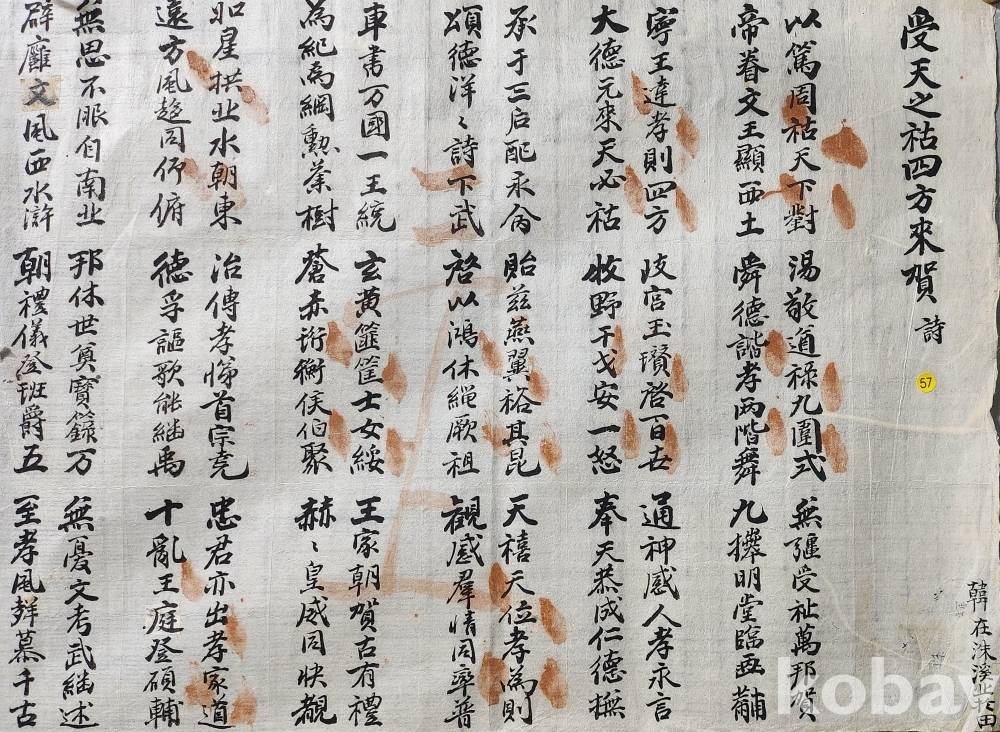 受天之祜四方來賀 詩
57
以篤周祜天下對 湯敬道祿九圍式 無彊受祉萬邦賀
帝眷文王顯西土 舜德諧孝兩階舞 九明堂臨黼
寧王達孝則四方 歧宮玉瓚啓百世 通神感人孝永言
大德元來天必祜 牧野干戈安一怒 奉天恭成仁德撫
承于三后配永命 貽茲燕翼裕其昆 天禧天位孝為則
頌德洋〻詩下武 啓以鴻休繩厥祖 觀感羣情同率普
車書万國一王統 玄黃篚筐士女綏 王家朝賀古有禮
為紀為綱勳業樹 蒼赤珩衡侯伯聚 赫〻皇威同快覩
如星拱北水朝東 治傳孝悌首宗堯 忠君亦出孝家道
遠方風趍同仰俯 德孚謳歌能繼禹 十亂王庭登碩輔
無思不服自南北 邦休世奠寶籙万 無憂文考武繼述
辟廱文風西水滸 朝禮儀登班爵五 至孝風聲慕千古
韓在洙溪北田
kobay